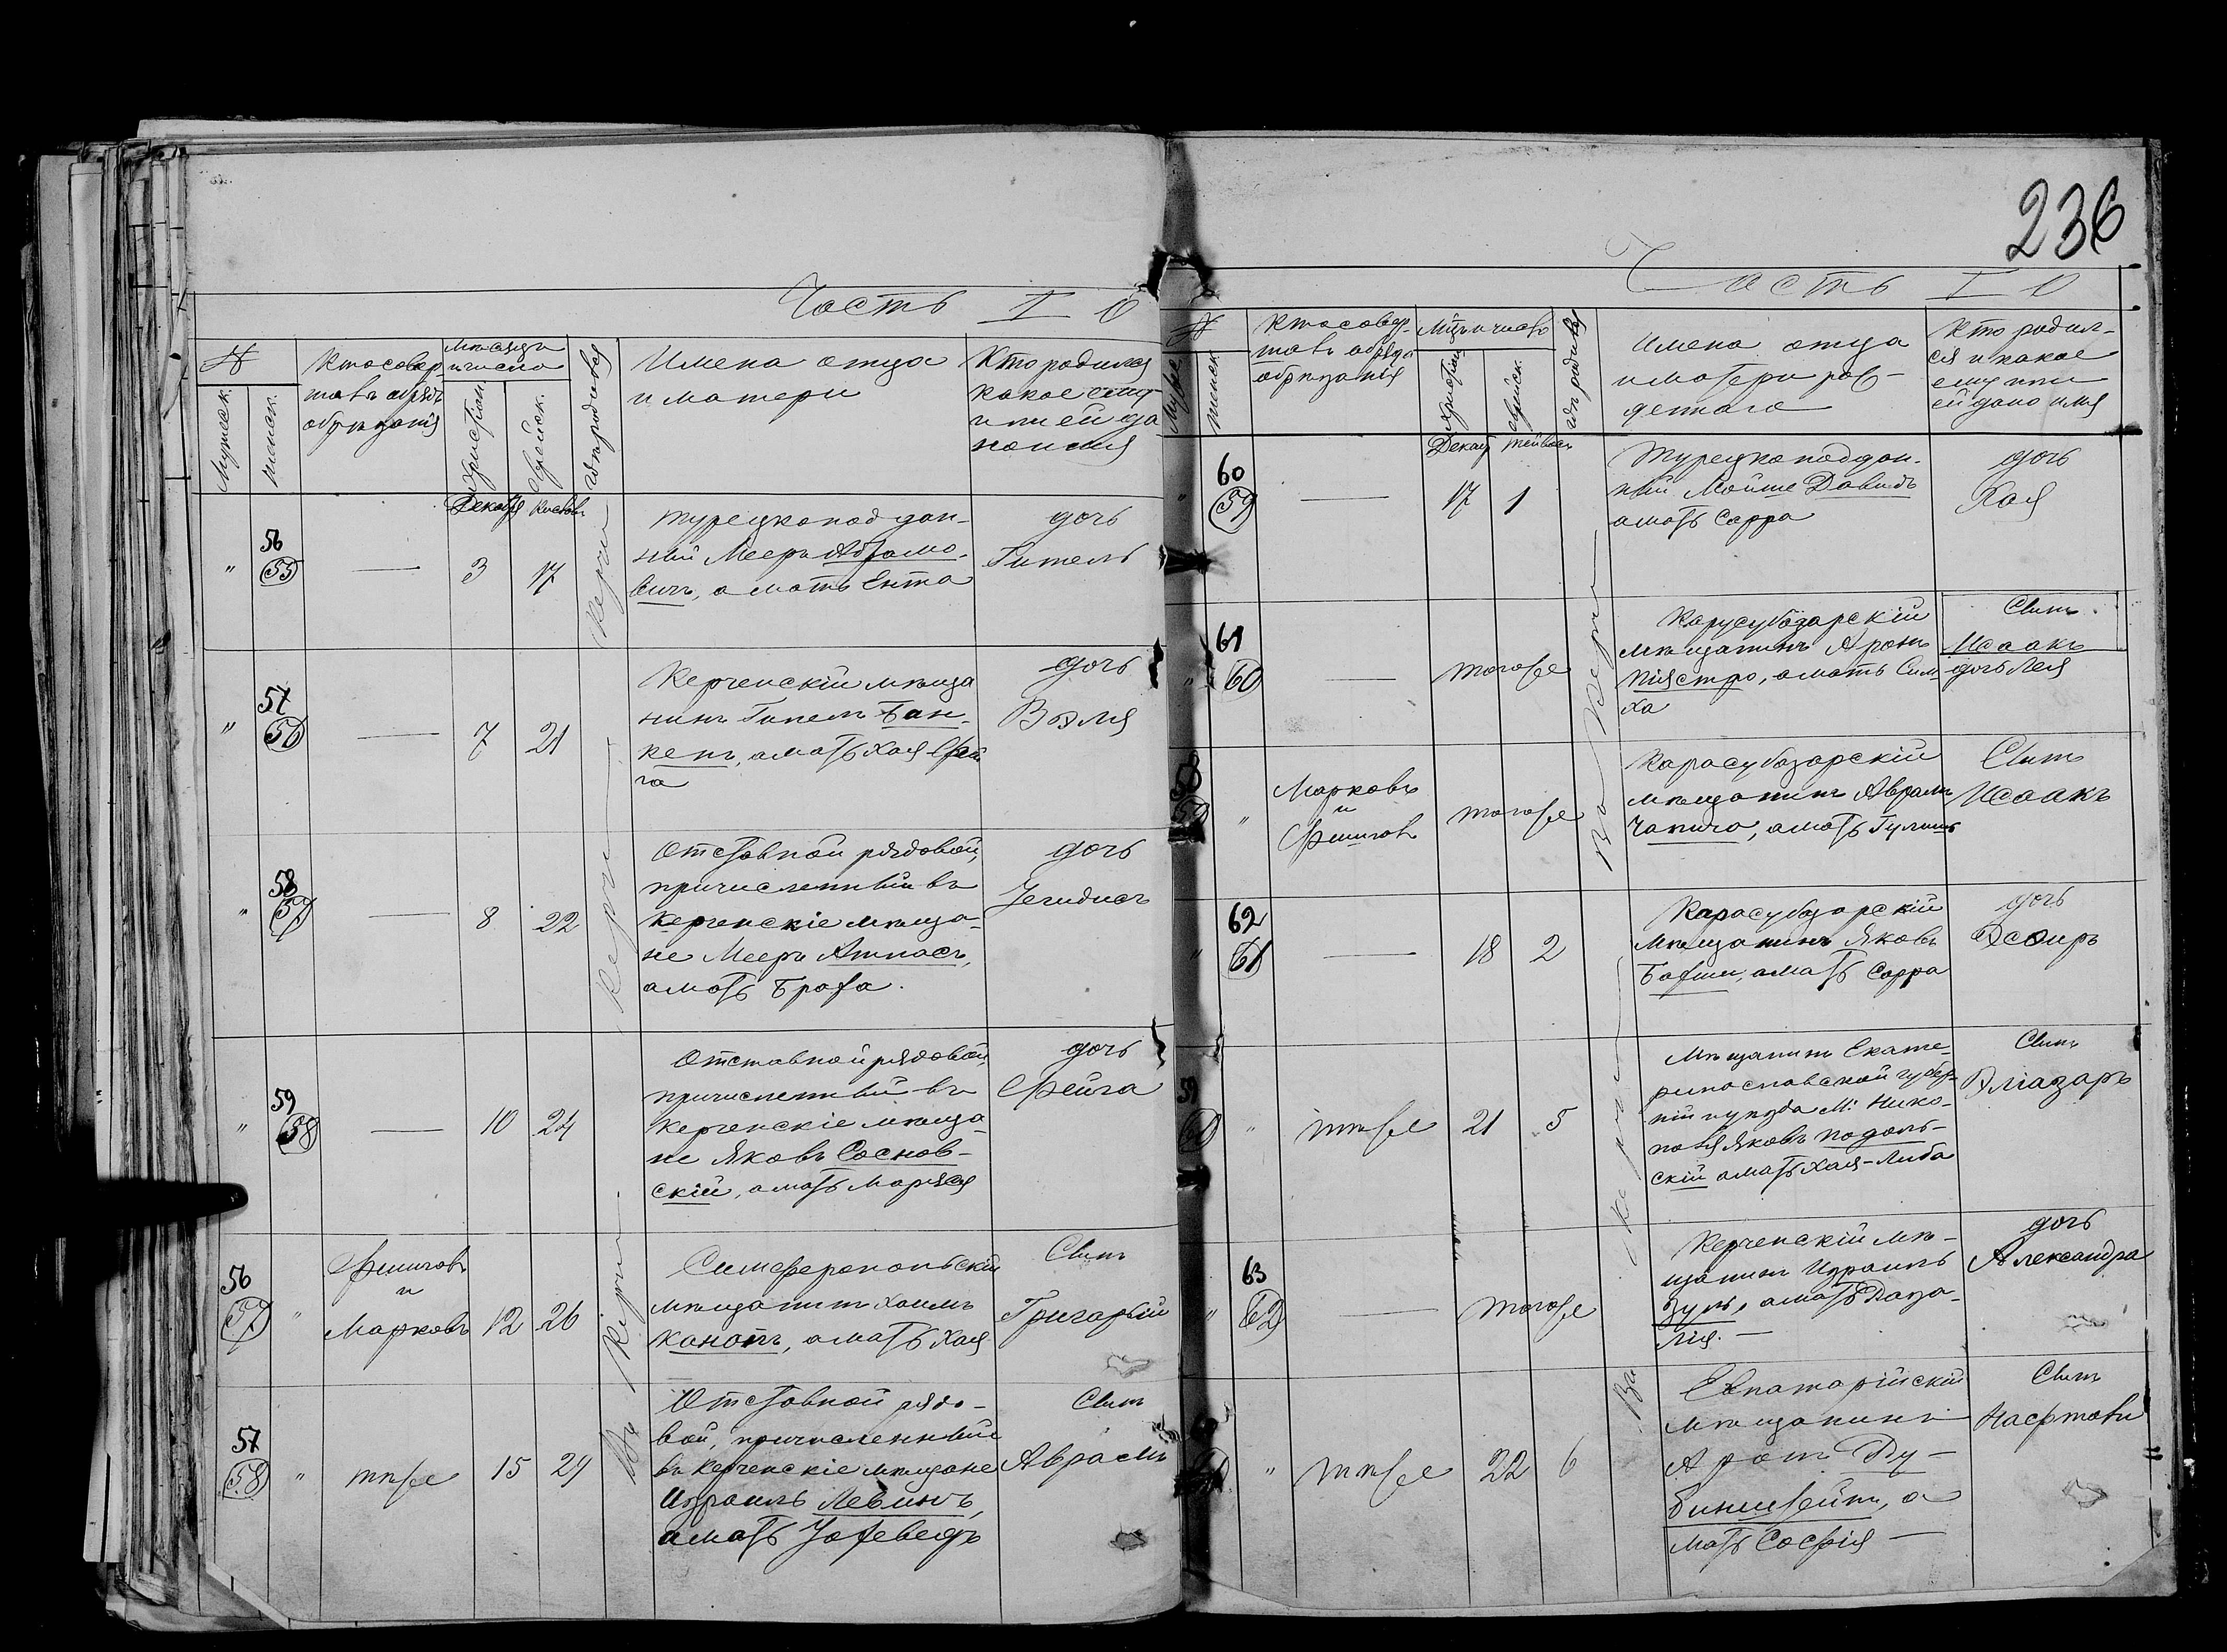 Часть I о
№
Мужеск.
Женск.
Кто совер-
шавъ обрядъ
обрѣзанія
Мѣсяцъ
и число
Христіан.
Еврейск.
Гдѣ родился
Имена отца
и матери
Кто родился
какое ему
или ей да
но имя
Декабря
Кислевъ
"
56
55
—
3
17
Керчи
Турецкоподдан-
ный Мееръ Абрамо-
вичъ, а мать Ента
дочь
Гитель
"
57
56
—
7
21
Керченскій мѣща
нинъ Гилелъ Бан-
кенъ, а мать Хая Фей
га
дочь
Вэля
"
58
57
—
8
22
Керчи
Отставной рядовой,
причисленный въ
Керченскіе мѣща-
не Мееръ Атласъ,
а мать Браха.
дочь
Іегидисъ
"
59
58
—
10
24
Отставной рядовой,
причисленный въ
Керченскіе мѣща-
не Яковъ Соснов-
скій, а мать Маріася
дочь
Фейга
56
57
"
и
Марковъ
12
26
Керчи
Симферопольскій
мѣщанинъ Хаимъ
Канопъ, а мать Хая
Сынъ
Григорый
57
58
"
тѣже
15
29
Въ
Отставной рядо-
вой, причисленный
въ Керченскіе мѣщане
Израиль Левинъ,
а мать Іохеведъ
Сынъ
Абрамъ
236
Часть I о
№
Мужес
Женск.
Кто совер-
шавъ обряда
обрѣзанія
Мѣц. и число
Христіан
Еврейск.
Гдѣ родился
Имена отца
и матери рож-
деннаго
Кто родил-
ся и какое
ему или
ей дано имя
Декаб
Тейвесъ
"
60
59
—
17
1
Турецкоподдан-
ный Мойше Давидъ
а мать Сарра
дочь
Хая
"
61
60
—
тогоже
Въ Керчи
Карусубазарскій
мѣщанинъ Аронъ
Піястро, а мать Сим-
ха
Сынъ
Исаакъ
дочь Лея
58
"
Марковъ
и
тогоже
Карасубазарскій
мѣщанинъ Аврамъ
Чапичо, а мать Гулюшъ
Сынъ
Исаакъ
"
62
61
—
18
2
Карасубазарскій
мѣщанинъ Яковъ
Бакши, а мать Сарра
дочь
Эсфирь
59
"
тѣже
21
5
Керчи
Мѣщанинъ Екате-
ринославской губер-
ніи уѣзда М: Нико-
поля Яковъ Подоль-
скій а мать Хая-Либа
Сынъ
Эліазаръ
"
63
62
—
тогоже
Керченскій мѣ-
щанинъ Израиль
Зуль, а мать
лія. —
дочь
Александра
"
тѣже
22
6
Въ
Евпаторійскій
мѣщанинъ
Аронъ Ду-
бинштейнъ, а
мать Софія —
Сынъ
Нафтоли